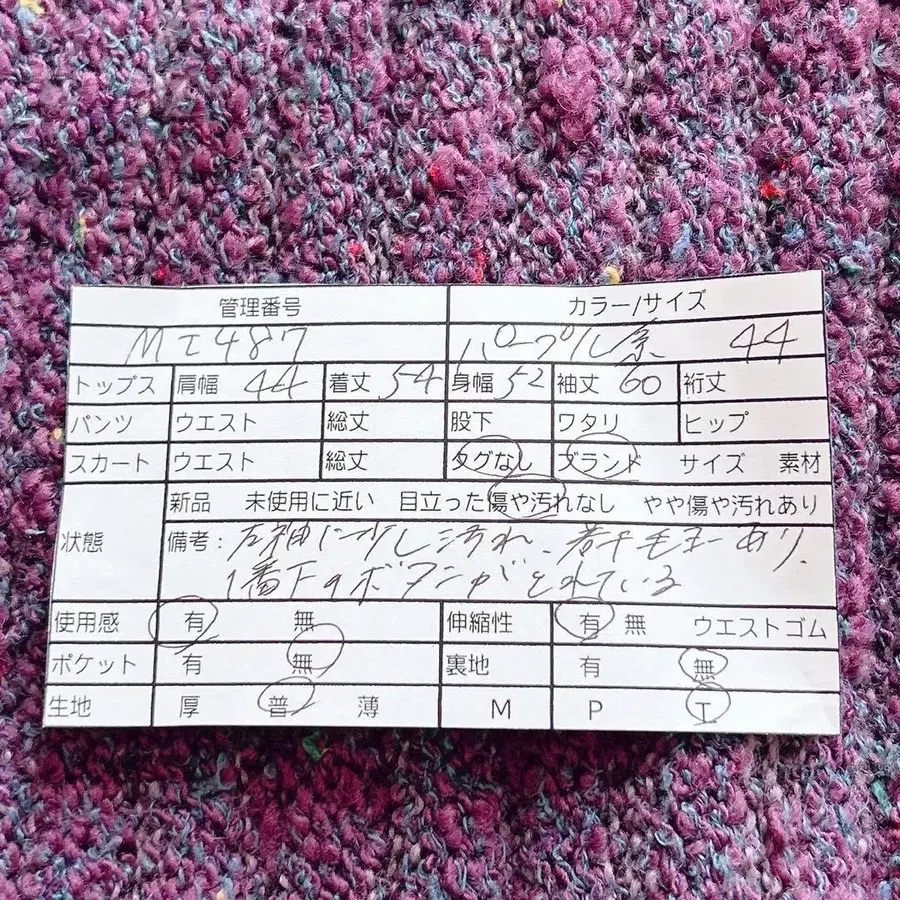 管理番号 カラー/サイズ
MI487 パープル系 44
トップス 肩幅 44 着丈 54 身幅 52 袖丈 60 裄丈
パンツ ウエスト 総丈 股下 ワタリ ヒップ
スカート ウエスト 総丈 タグなし ブランド サイズ 素材
新品 未使用に近い 目立った傷や汚れなし やや傷や汚れあり
状態 備考：左袖に少し汚れ、若干毛玉あり、
1番下のボタンがとれている
使用感 有 無 伸縮性 有 無 ウエストゴム
ポケット 有 無 裏地 有 無
生地 厚 普 薄 M P T